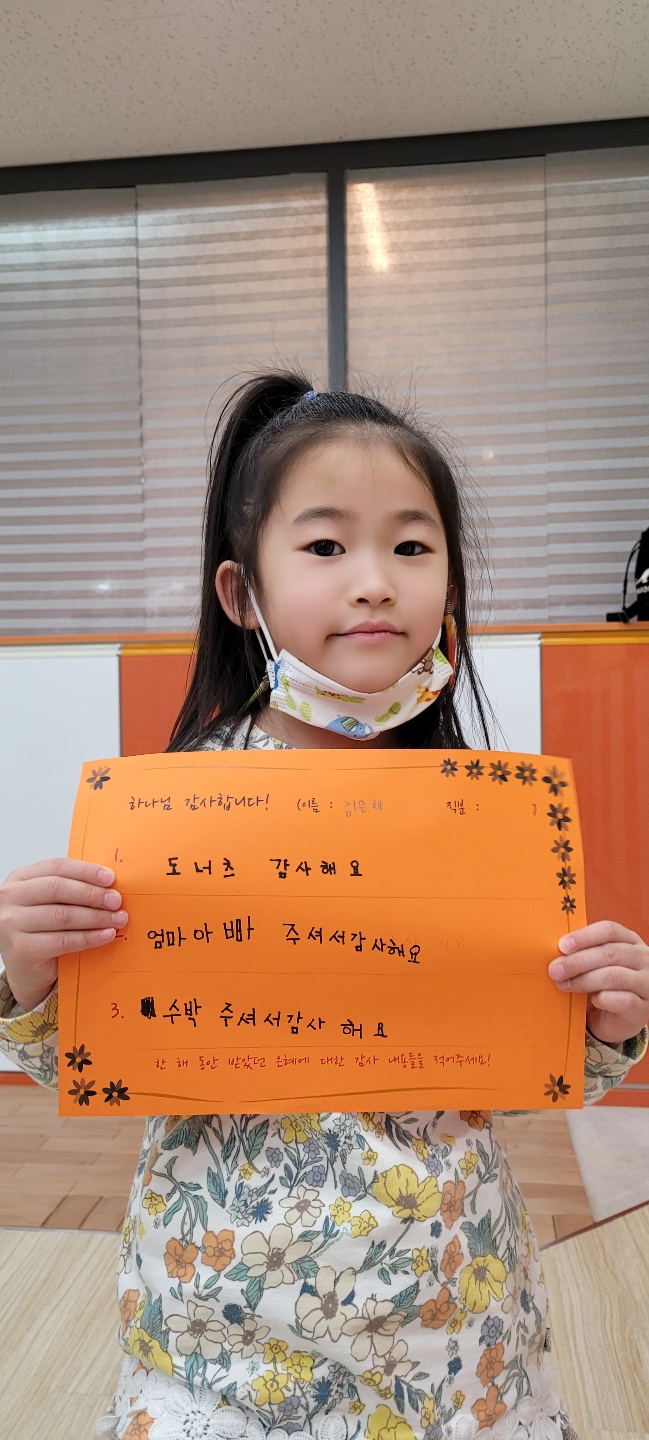 하나님 감사합니다! (이름 : 김은채 직분 : )
1. 도너츠 감사해요
2. 엄마아빠 주셔서감사해요
3. 수박 주셔서감사해요
한 해 동안 받았던 은혜에 대한 감사 내용들을 적어주세요!